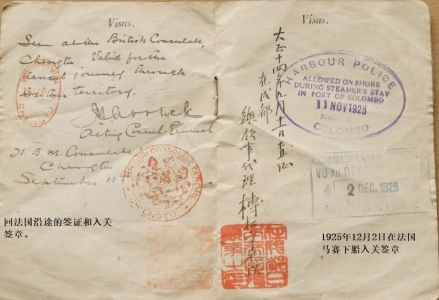 Visas.
Seen at the British Consulate,
Chengtu. Valid for the
transit journey through
British territory.
Acting Consul-General
H. B. M. Consulate
Chengtu
September 11
回法国沿途的签证和入关
签章。
Visas.
大正十四年九月十一日查证
在成都
總領事代理
HARBOUR POLICE
ALLOWED ON SHORE
DURING STEAMER'S STAY
IN PORT OF COLOMBO
11 NOV 1925
COLOMBO
2 DEC. 1925
1925年12月2日在法国
马赛下船入关签章